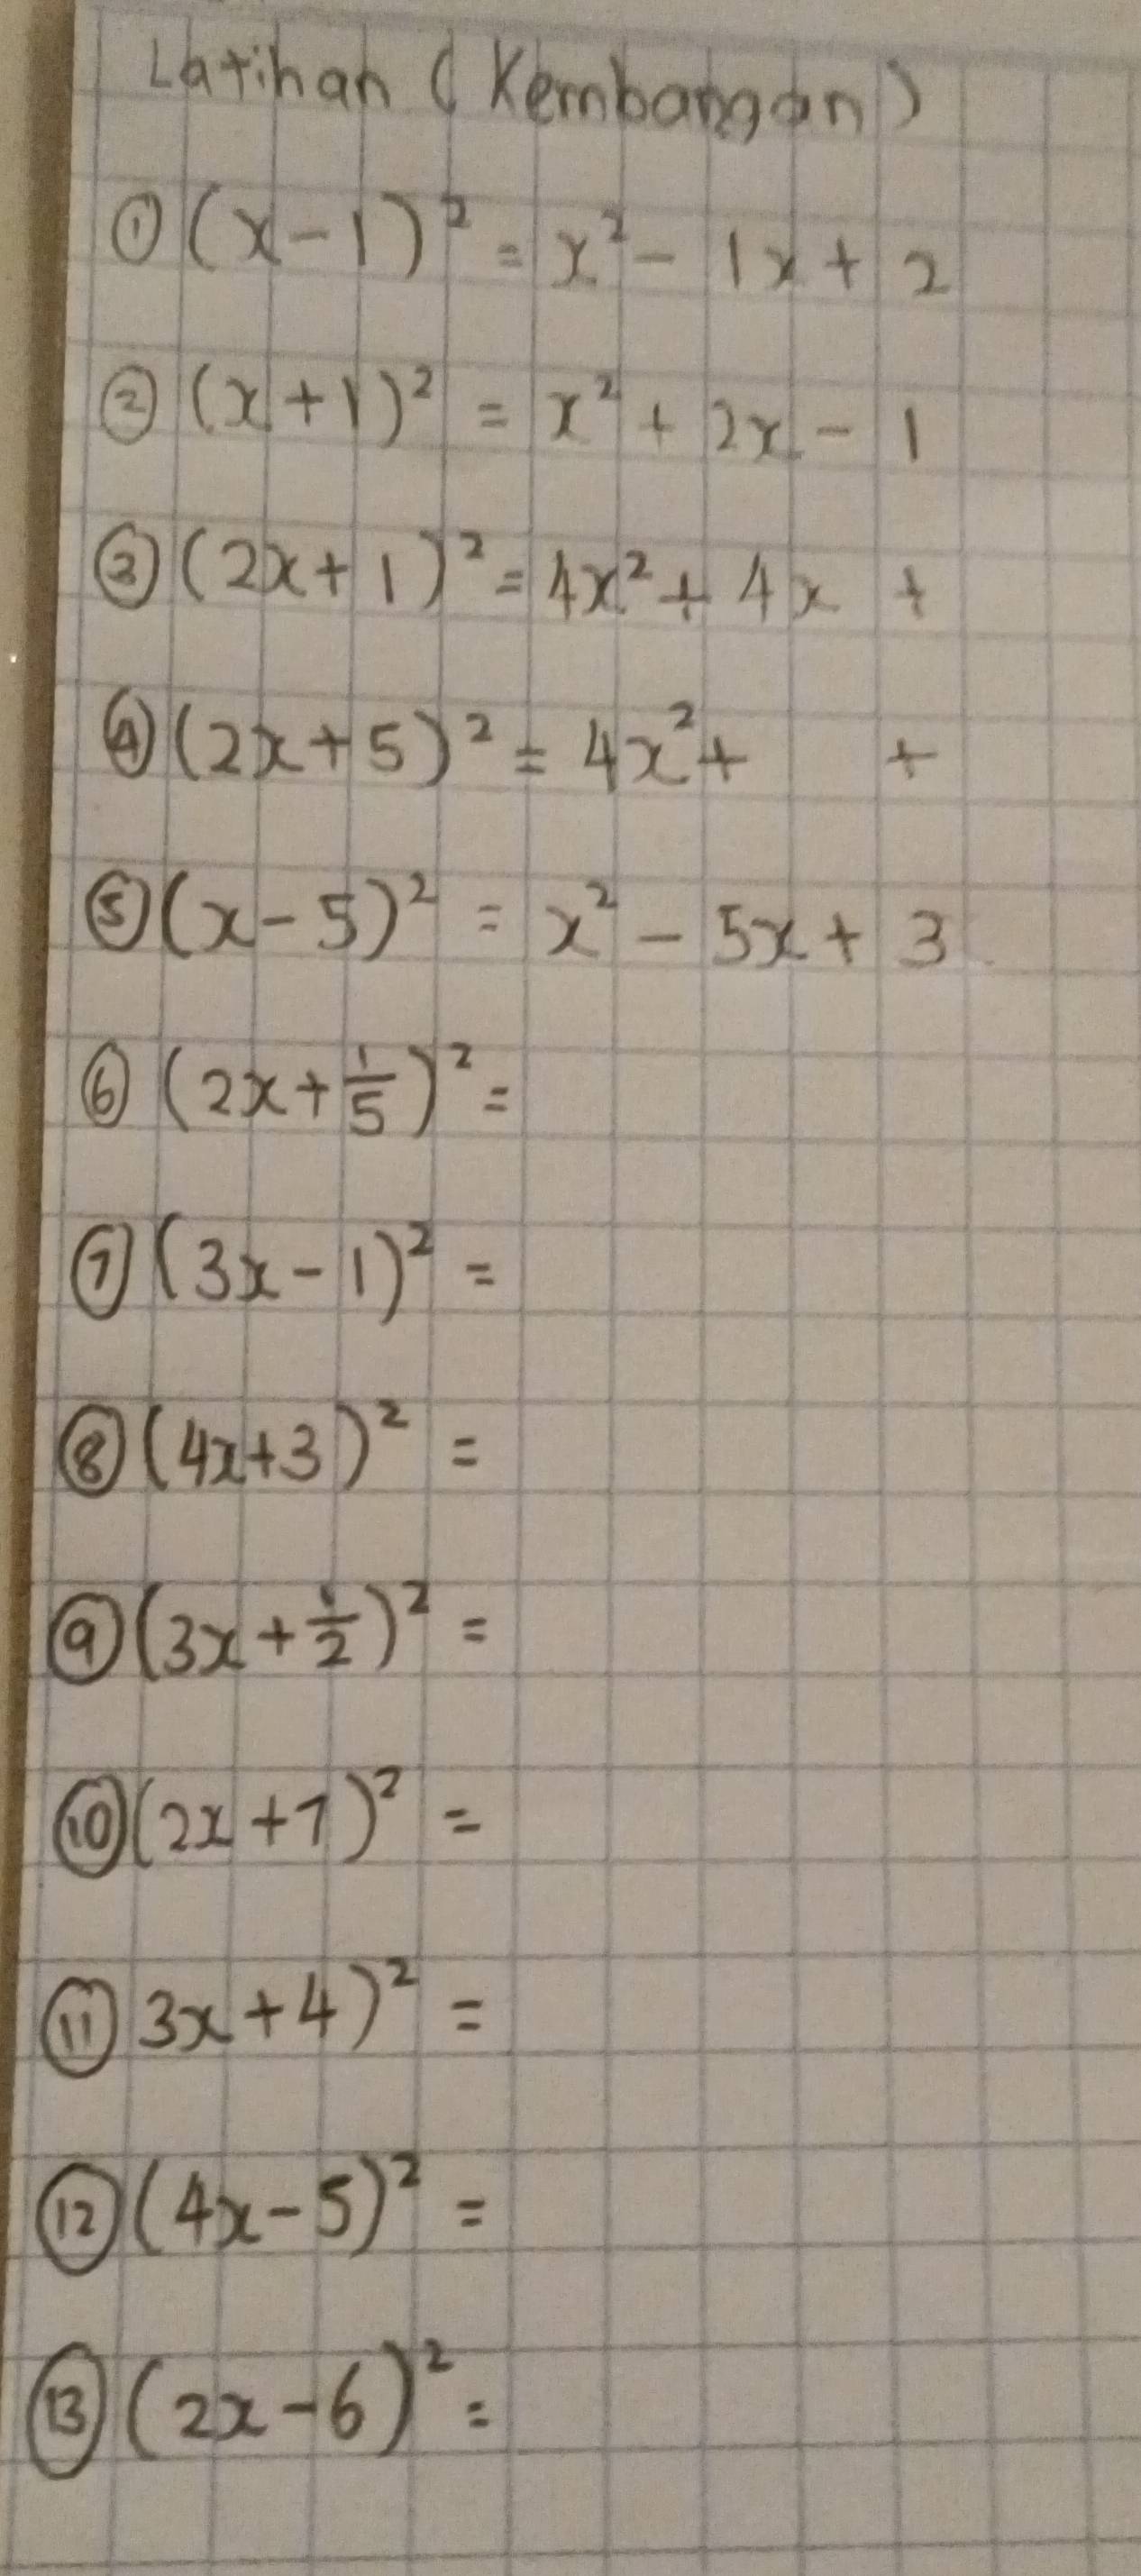 Latihan (Kembangan)
① (x-1)² = x² - 1x + 2
② (x+1)² = x² + 2x - 1
③ (2x+1)² = 4x² + 4x +
④ (2x+5)² = 4x² +   +
⑤ (x-5)² = x² - 5x + 3
⑥ (2x+1/5)² =
⑦ (3x-1)² =
⑧ (4x+3)² =
⑨ (3x+1/2)² =
⑩ (2x+7)² =
⑪ 3x+4)² =
⑫ (4x-5)² =
⑬ (2x-6)² =